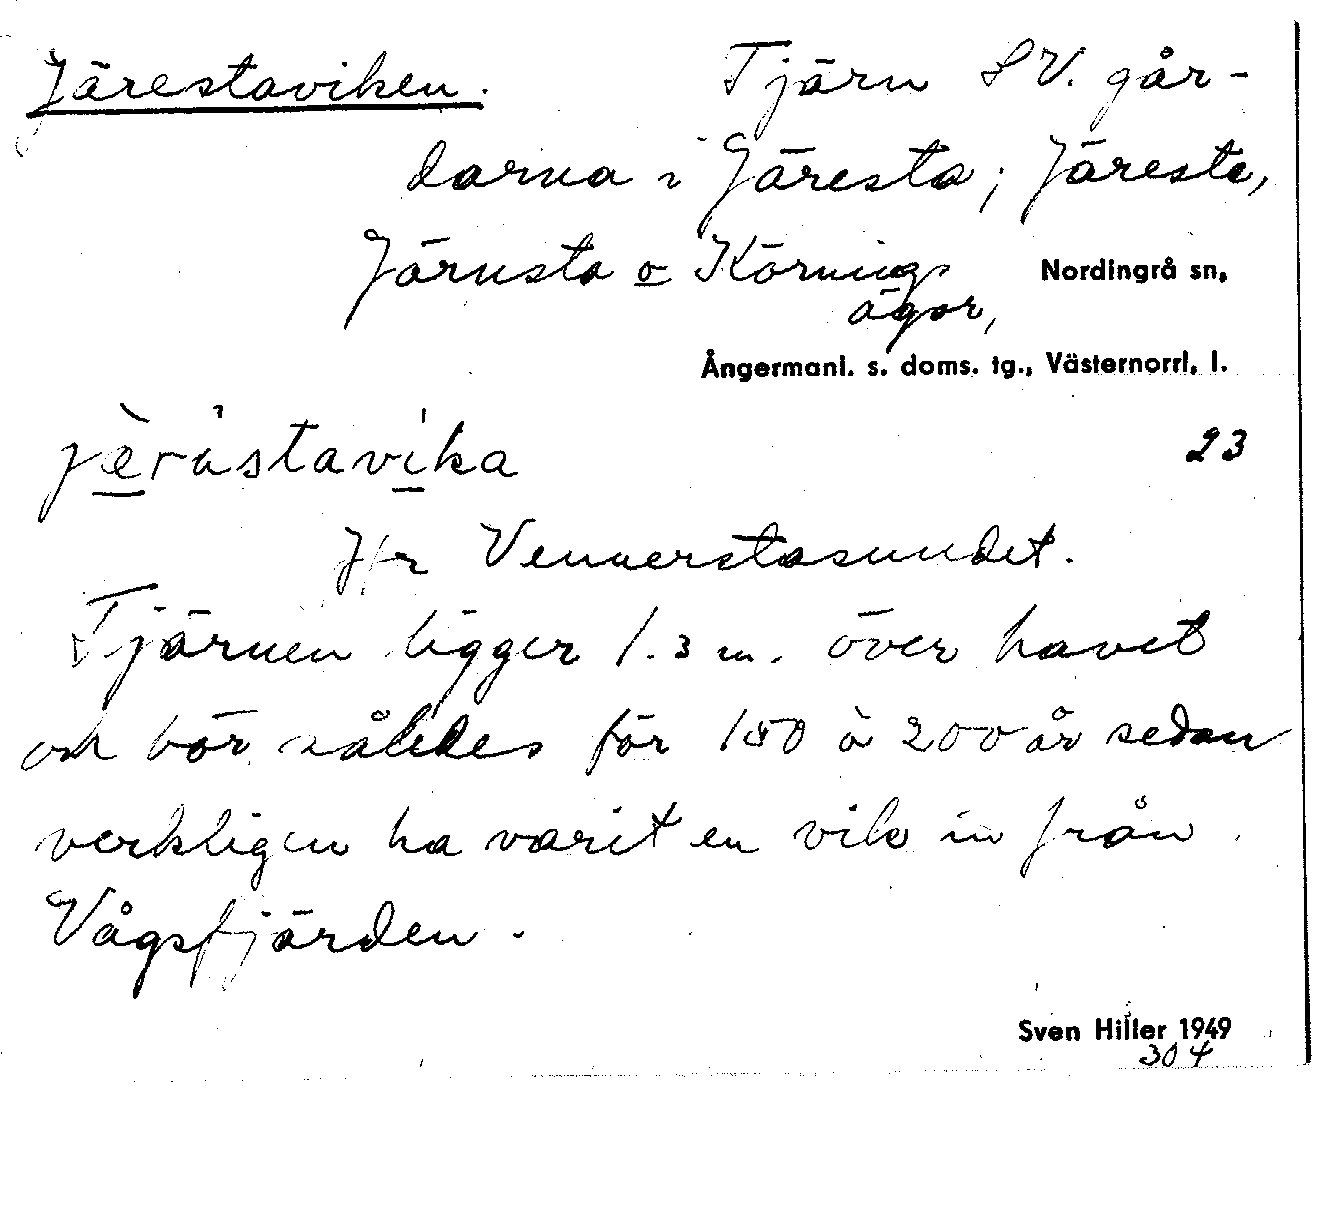 Järestaviken. Tjärn SV. går-
darna i Järesta; Järesta,
Järnsta o Körnings
ägor,
Nordingrå sn,
Ångermanl. s. doms. tg., Västernorrl. l.
jèrústavíka
23
Jfr Vennerstasundet.
Tjärnen ligger 1.3 m. över havet
och bör således för 150 à 200 år sedan
verkligen ha varit en vik in från
Vågsfjärden.
Sven Hiller 1949
304